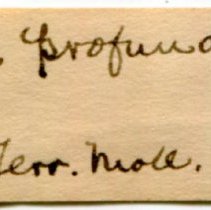 profund
Terr. Moll.